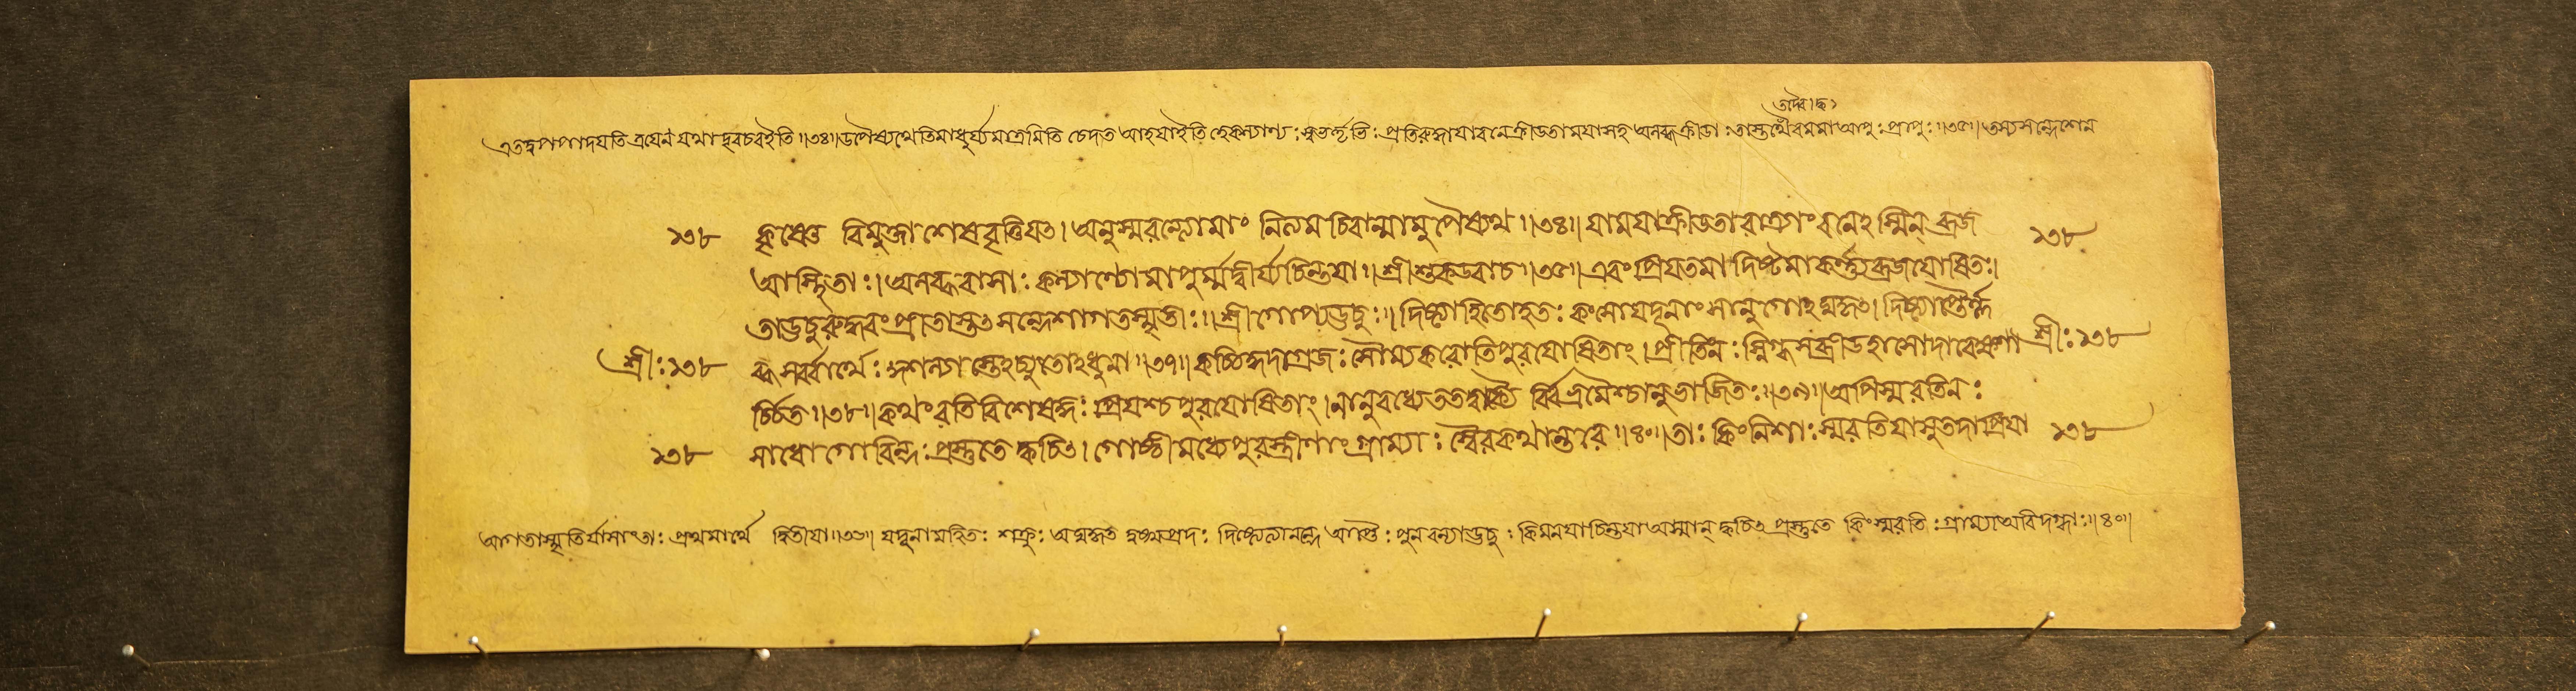 তাদৈব।দ্ধ১
এতদুপপাদযতি এযেনং যথা দূরচরইতি॥৩৪॥উপৈষ্যথেতিমাধুর্য্যমাত্রমিতি চেদত আহযাইতি হেকল্যাণ্যঃ স্বভর্তৃভিঃ প্রতিরুদ্ধাযাবনেক্রীডতামযাসহ অলব্ধক্রীডাঃ তাস্তথৈবমমা আপুঃ প্রাপুঃ॥৩৫॥ তস্যসন্দেশেন
১৩৮ কৃষ্ণে বিমুক্তাশেষবৃত্তিযৎ। অনুস্মরন্ত্যোমাং নিত্যমচিরান্মামুপৈষ্যথ॥৩৪॥ যামযাক্রীডতারাত্র্যাং বনেঽস্মিন্ ব্রজ ১৩৮
আস্থিতাঃ। অলব্ধরাসাঃ কল্যাণ্যোমাপুর্ম্মদ্বীর্য্যচিন্তযা॥ শ্রীশুকউবাচ॥৩৫॥ এবংপ্রিযতমাদিষ্টমাকর্ণ্যব্রজযোষিতঃ।
তাউচুরুদ্ধবংপ্রীতাস্তৎসন্দেশাগতস্মৃতীঃ॥ শ্রীগোপ্যউচুঃ॥ দিষ্ট্যাহিতোহতঃ কংসোযদূনাং সানুগোঽঘকৃৎ। দিষ্ট্যাপ্তৈর্ল
শ্রীঃ১৩৮ ব্ধসর্ব্বার্থৈঃ কুশল্যাস্তেঽচ্যুতোঽধুনা॥৩৭॥ কচ্চিদ্গদাগ্রজঃ সৌম্যকরোতিপুরযোষিতাং। প্রীতিংনঃ স্নিগ্ধসব্রীডহাসোদারেক্ষণা শ্রীঃ১৩৮
র্চ্চিত॥৩৮॥ কথংরতিবিশেষজ্ঞঃ প্রিযশ্চপুরযোষিতাং। নানুবধ্যেততদ্বাক্যৈ র্বিভ্রমৈশ্চানুভাজিতঃ॥৩৯॥ অপিস্মরতিনঃ
১৩৮ সাধোগোবিন্দঃ প্রস্তুতে ক্বচিৎ। গোষ্ঠীমধ্যেপুরস্ত্রীণাং গ্রাম্যাঃ স্বৈরকথান্তরে॥৪০॥ তাঃ কিংনিশাঃ স্মরতিযাসুতদাপ্রিযা ১৩৮
আগতাস্মৃতির্যাসাংতাঃ প্রথমার্থে দ্বিতীযা॥৩৬॥ যদূনামহিতঃ শত্রুঃ অঘকৃত দুঃখপ্রদঃ দিষ্ট্যেত্যানন্দ আপ্তৈঃ পুনরন্যাউচুঃ কিমনযাচিন্তযা অস্মান্ ক্বচিৎ প্রস্তুতে কিংস্মরতিঃ গ্রাম্যাঅবিদগ্ধাঃ॥৪০॥